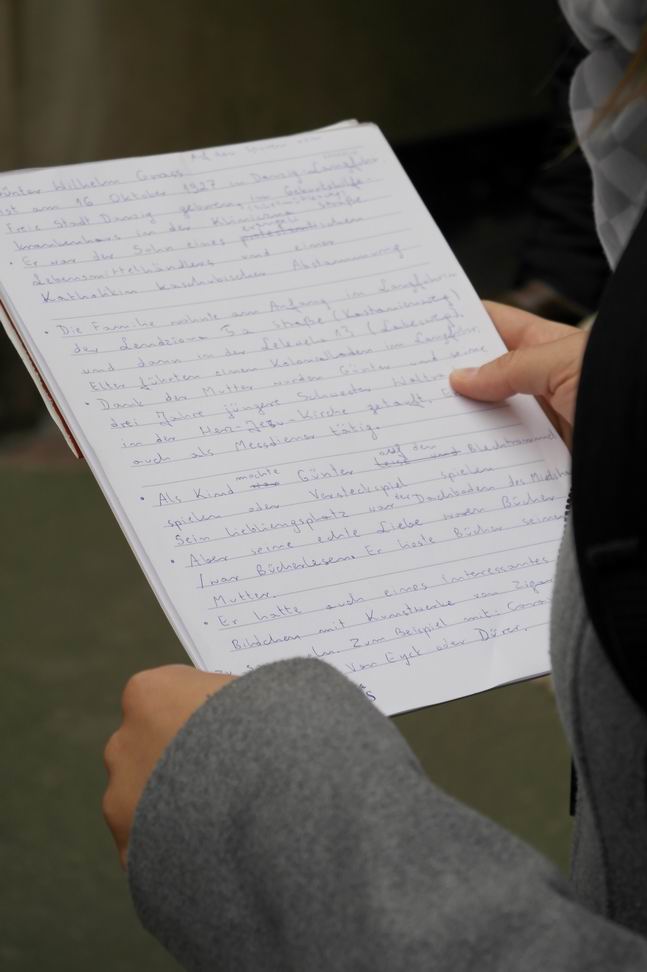 Günter Wilhelm Grass Auf den Spuren von
ist am 16 Oktober 1927 in Danzig-Langfuhr,
Freie Stadt Danzig geboren im Geburtshilfe-
krankenhaus in der Kliniczna straße
• Er war der Sohn eines protestantischen
Lebensmittelhändlers und einer
Katholikin kaschubischer Abstammung
• Die Familie wohnte am Anfang im Langfuhr in
der Lendziona 5a straße (Kastanienweg)
und dann in der Lelewela 13 (Labesweg).
Elter führten einen Kolonialladen im Langfuhr.
• Dank der Mutter wurden Günter und seine
drei Jahre jüngere Schwester Waltra
in der Herz-Jesu-Kirche getauft. E
auch als Messdiener tätig.
• Als Kind mochte Günter auf den Blechtrommel
spielen oder Versteckspiel spielen
Sein Lieblingsplatz war der Dachboden des Mietsha
• Aber seine echte Liebe waren Bücher
/war Bücherlesen. Er lieste Bücher seiner
Mutter.
• Er hatte auch eines interessantes
Bildchen mit Kunstwerke von Zigar
zu Zum Beispiel mit:
Van Eyck oder Dürer.